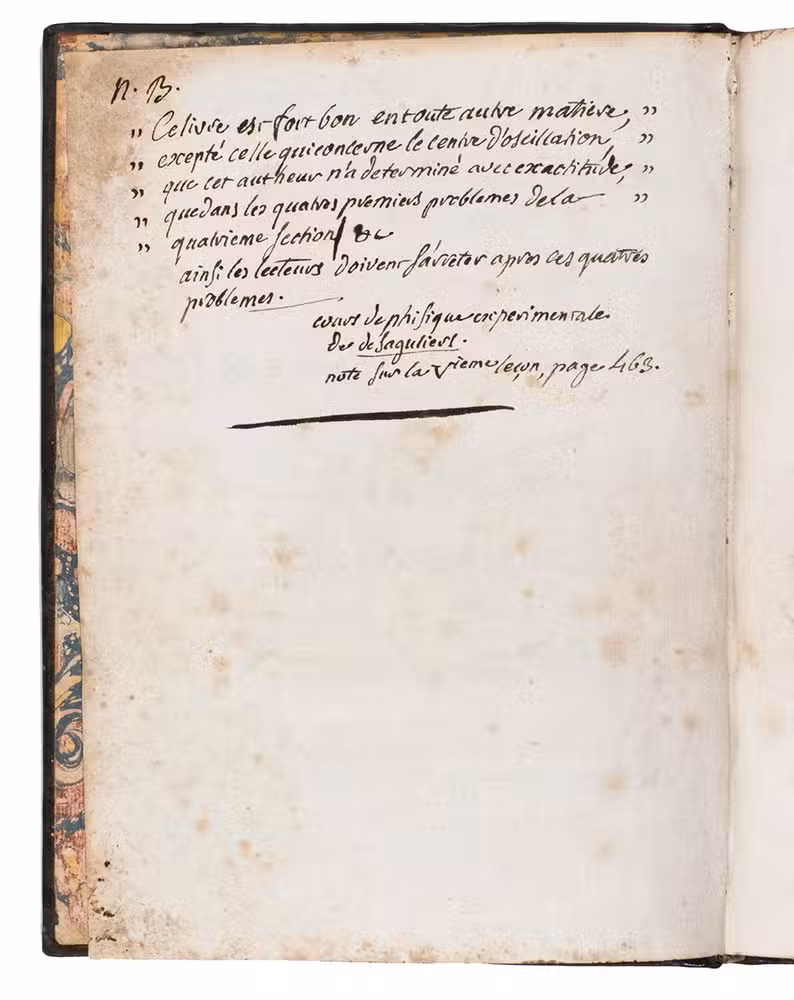 n. B.
„ Ce livre est fort bon en toute autre matiere, „
„ excepté celle qui concerne le centre d'oscillation, „
„ que cet autheur n'a determiné avec exactitude, „
„ que dans les quatres premiers problemes de la „
„ quatrieme section &c
ainsi les lecteurs doivent s'arreter apres ces quatres
problemes.
cours de phisique experimentale
de desaguliers.
note sur la vieme leçon, page 463.